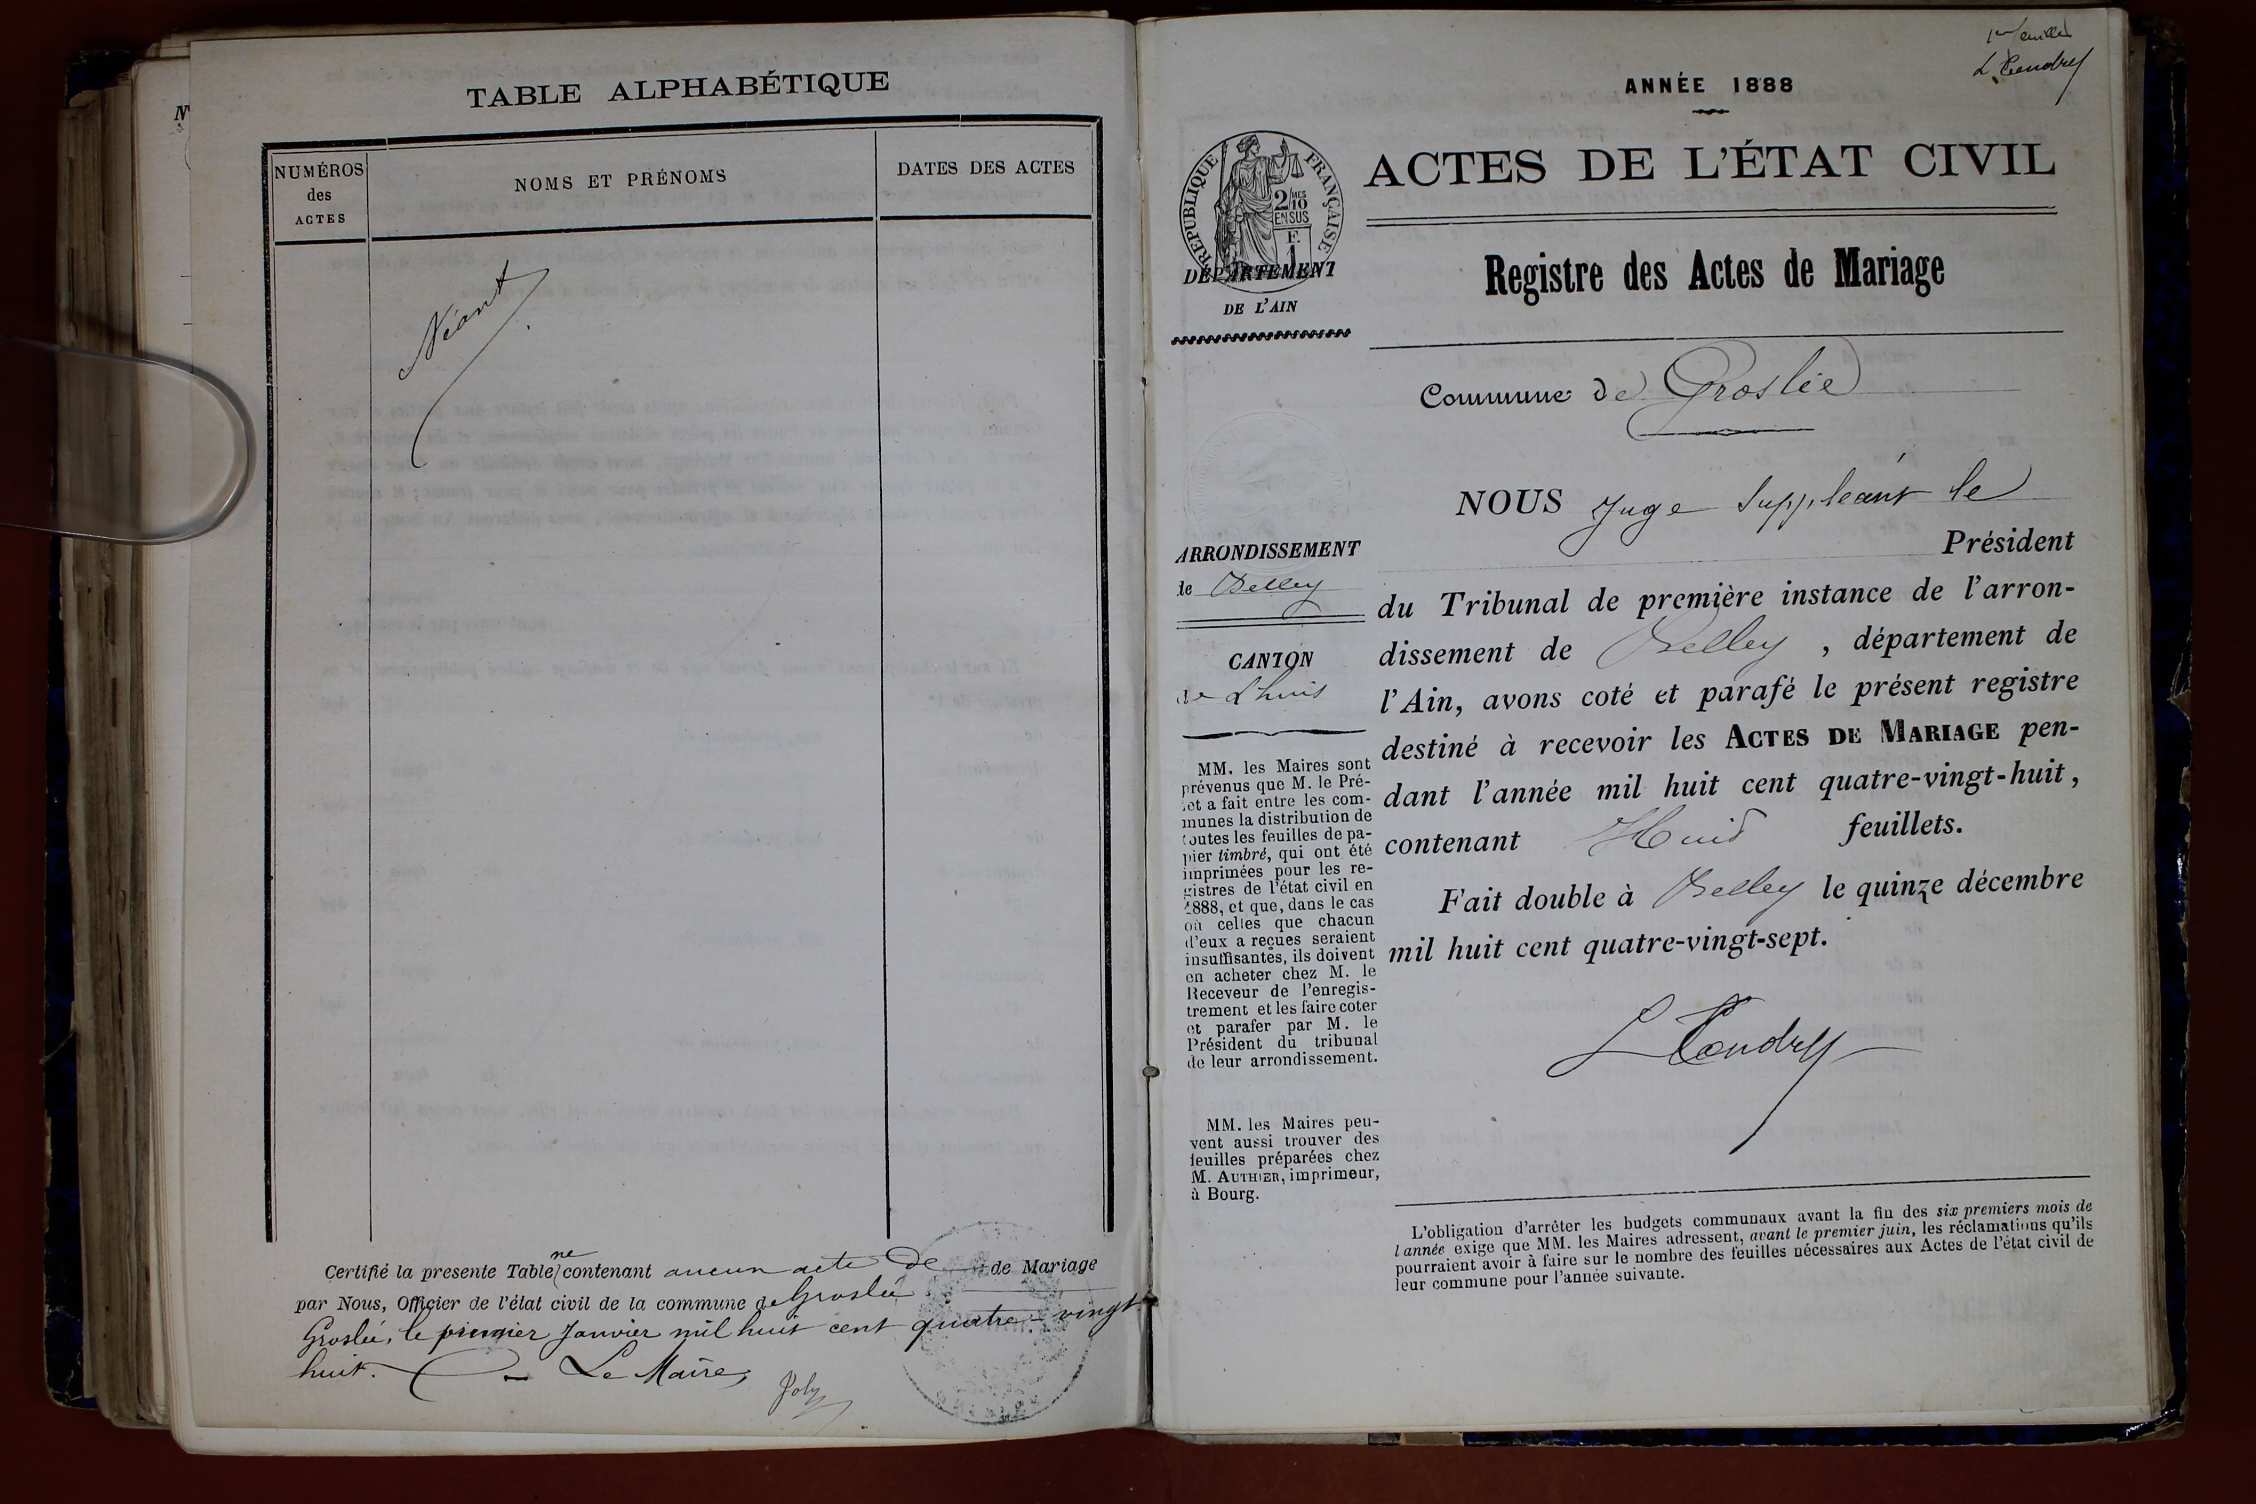 TABLE ALPHABÉTIQUE
NUMÉROS
des
ACTES
NOMS ET PRÉNOMS
DATES DES ACTES
Néant
Certifié la presente Table ne contenant aucun acte de de Mariage
par Nous, Officier de l'état civil de la commune de Groslée
Groslée, le premier Janvier mil huit cent quatre-vingt
huit. Le Maire,
Joly
1er feuillet
L Tendret
ANNÉE 1888
RÉPUBLIQUE FRANÇAISE
2/10 MES
EN SUS
F.
1
DÉPARTEMENT
DE L'AIN
ACTES DE L'ÉTAT CIVIL
Registre des Actes de Mariage
Commune de Groslée
ARRONDISSEMENT
de Belley
CANTON
de Lhuis
MM. les Maires sont
prévenus que M. le Pré-
fet a fait entre les com-
munes la distribution de
toutes les feuilles de pa-
pier timbré, qui ont été
imprimées pour les re-
gistres de l'état civil en
1888, et que, dans le cas
où celles que chacun
d'eux a reçues seraient
insuffisantes, ils doivent
en acheter chez M. le
Receveur de l'enregis-
trement et les faire coter
et parafer par M. le
Président du tribunal
de leur arrondissement.
MM. les Maires peu-
vent aussi trouver des
feuilles préparées chez
M. AUTHIER, imprimeur,
à Bourg.
NOUS Juge Suppléant le
Président
du Tribunal de première instance de l'arron-
dissement de Belley, département de
l'Ain, avons coté et parafé le présent registre
destiné à recevoir les ACTES DE MARIAGE pen-
dant l'année mil huit cent quatre-vingt-huit,
contenant Huit feuillets.
Fait double à Belley le quinze décembre
mil huit cent quatre-vingt-sept.
L Tendret
L'obligation d'arrêter les budgets communaux avant la fin des six premiers mois de
l'année exige que MM. les Maires adressent, avant le premier juin, les réclamations qu'ils
pourraient avoir à faire sur le nombre des feuilles nécessaires aux Actes de l'état civil de
leur commune pour l'année suivante.